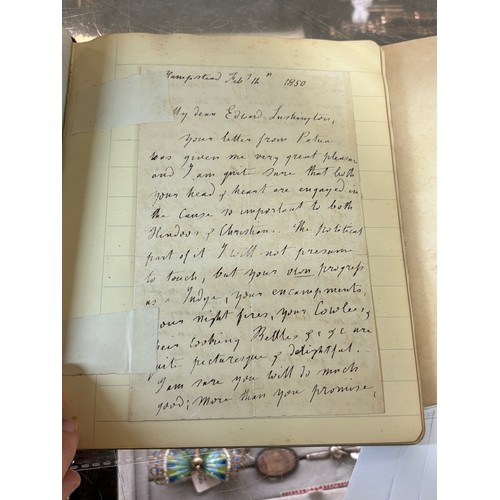 Hampstead Feb 7th 1850
My dear Edward Lushington,
Your letter from Patna
has given me very great pleasure
and I am quite sure that both
your head & heart are engaged in
the cause so important to both
Hindoos & Christians. The political
part of it I will not presume
to touch, but your own progress
as a Judge, your encampments,
your night fires, your Coolies, &
your cooking Kettles &c &c are
quite picturesque & delightful.
I am sure you will do much
good; more than you promise,